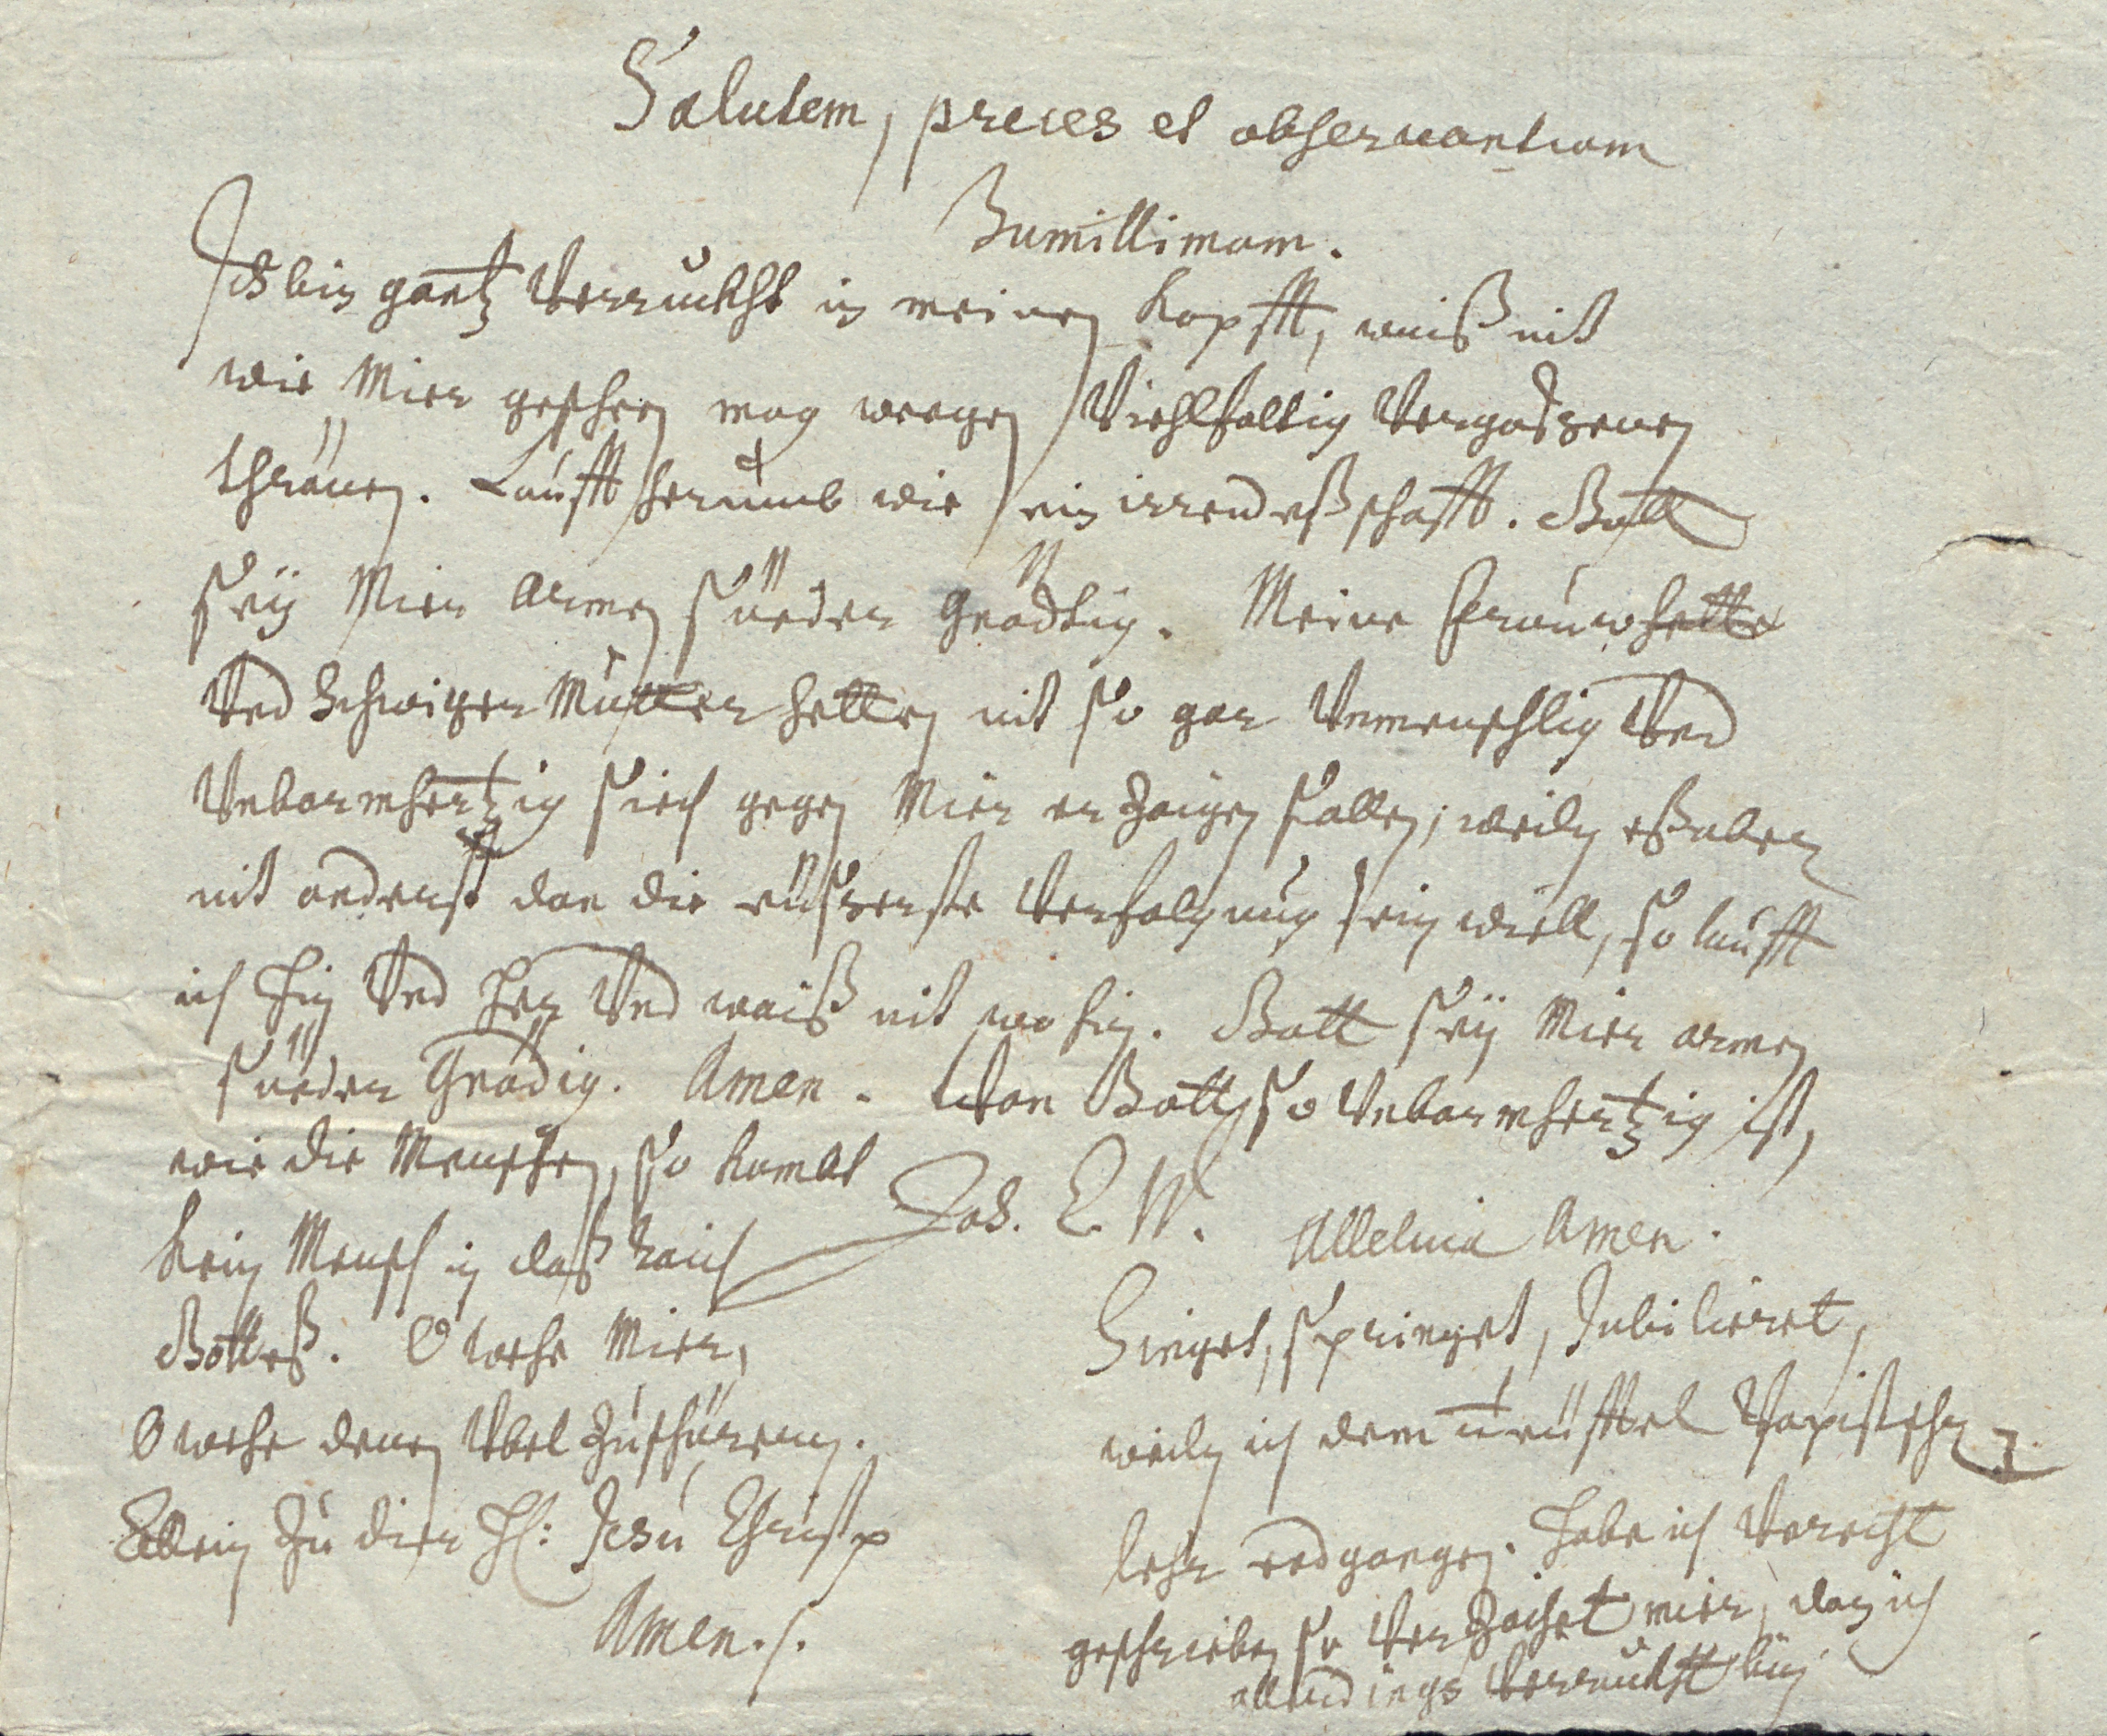 Salutem, preces et observantiam
humillimam.
Ich bin gantz verruckht in meinen Kopfft, weiß nit
wie Mier geschen mag wegen Viehlfaltig vergoßenen
thränen. Laufft herumb wie ein irrendeß schafft. Gott
seÿ Mier armen sünder Gnädig. Meine frauw hette
Vnd Schwiger Mutter hetten nit so gar Vnmenschlig Vnd
Vnbarmhertzig sich gegen Mier erzaigen sollen; weiln eß aber
nit anderst dan die eusserste Verfolgnug sein wiell, so laufft
ich hin Vnd her Vnd waiß nit wo hin. Gott seÿ Mier armen
sünder Gnädig. Amen. Wan Gott so Vnbarmhertzig ist,
wie die Menschen, so kombt
kein Mensch in daß Raich
Gotteß. O wehe Mier,
O wehe denen Vbel
Allein zu dier H: Jesu Christe
Amen./.
Joh. E. W.
Alleluia Amen.
Singet, springet, Jubilieret,
weiln ich dem Papistischen
lehr endgangen. Habe ich Vnrecht
geschrieben so Verzaihet mier, dan ich
allerdings Verruckht bin